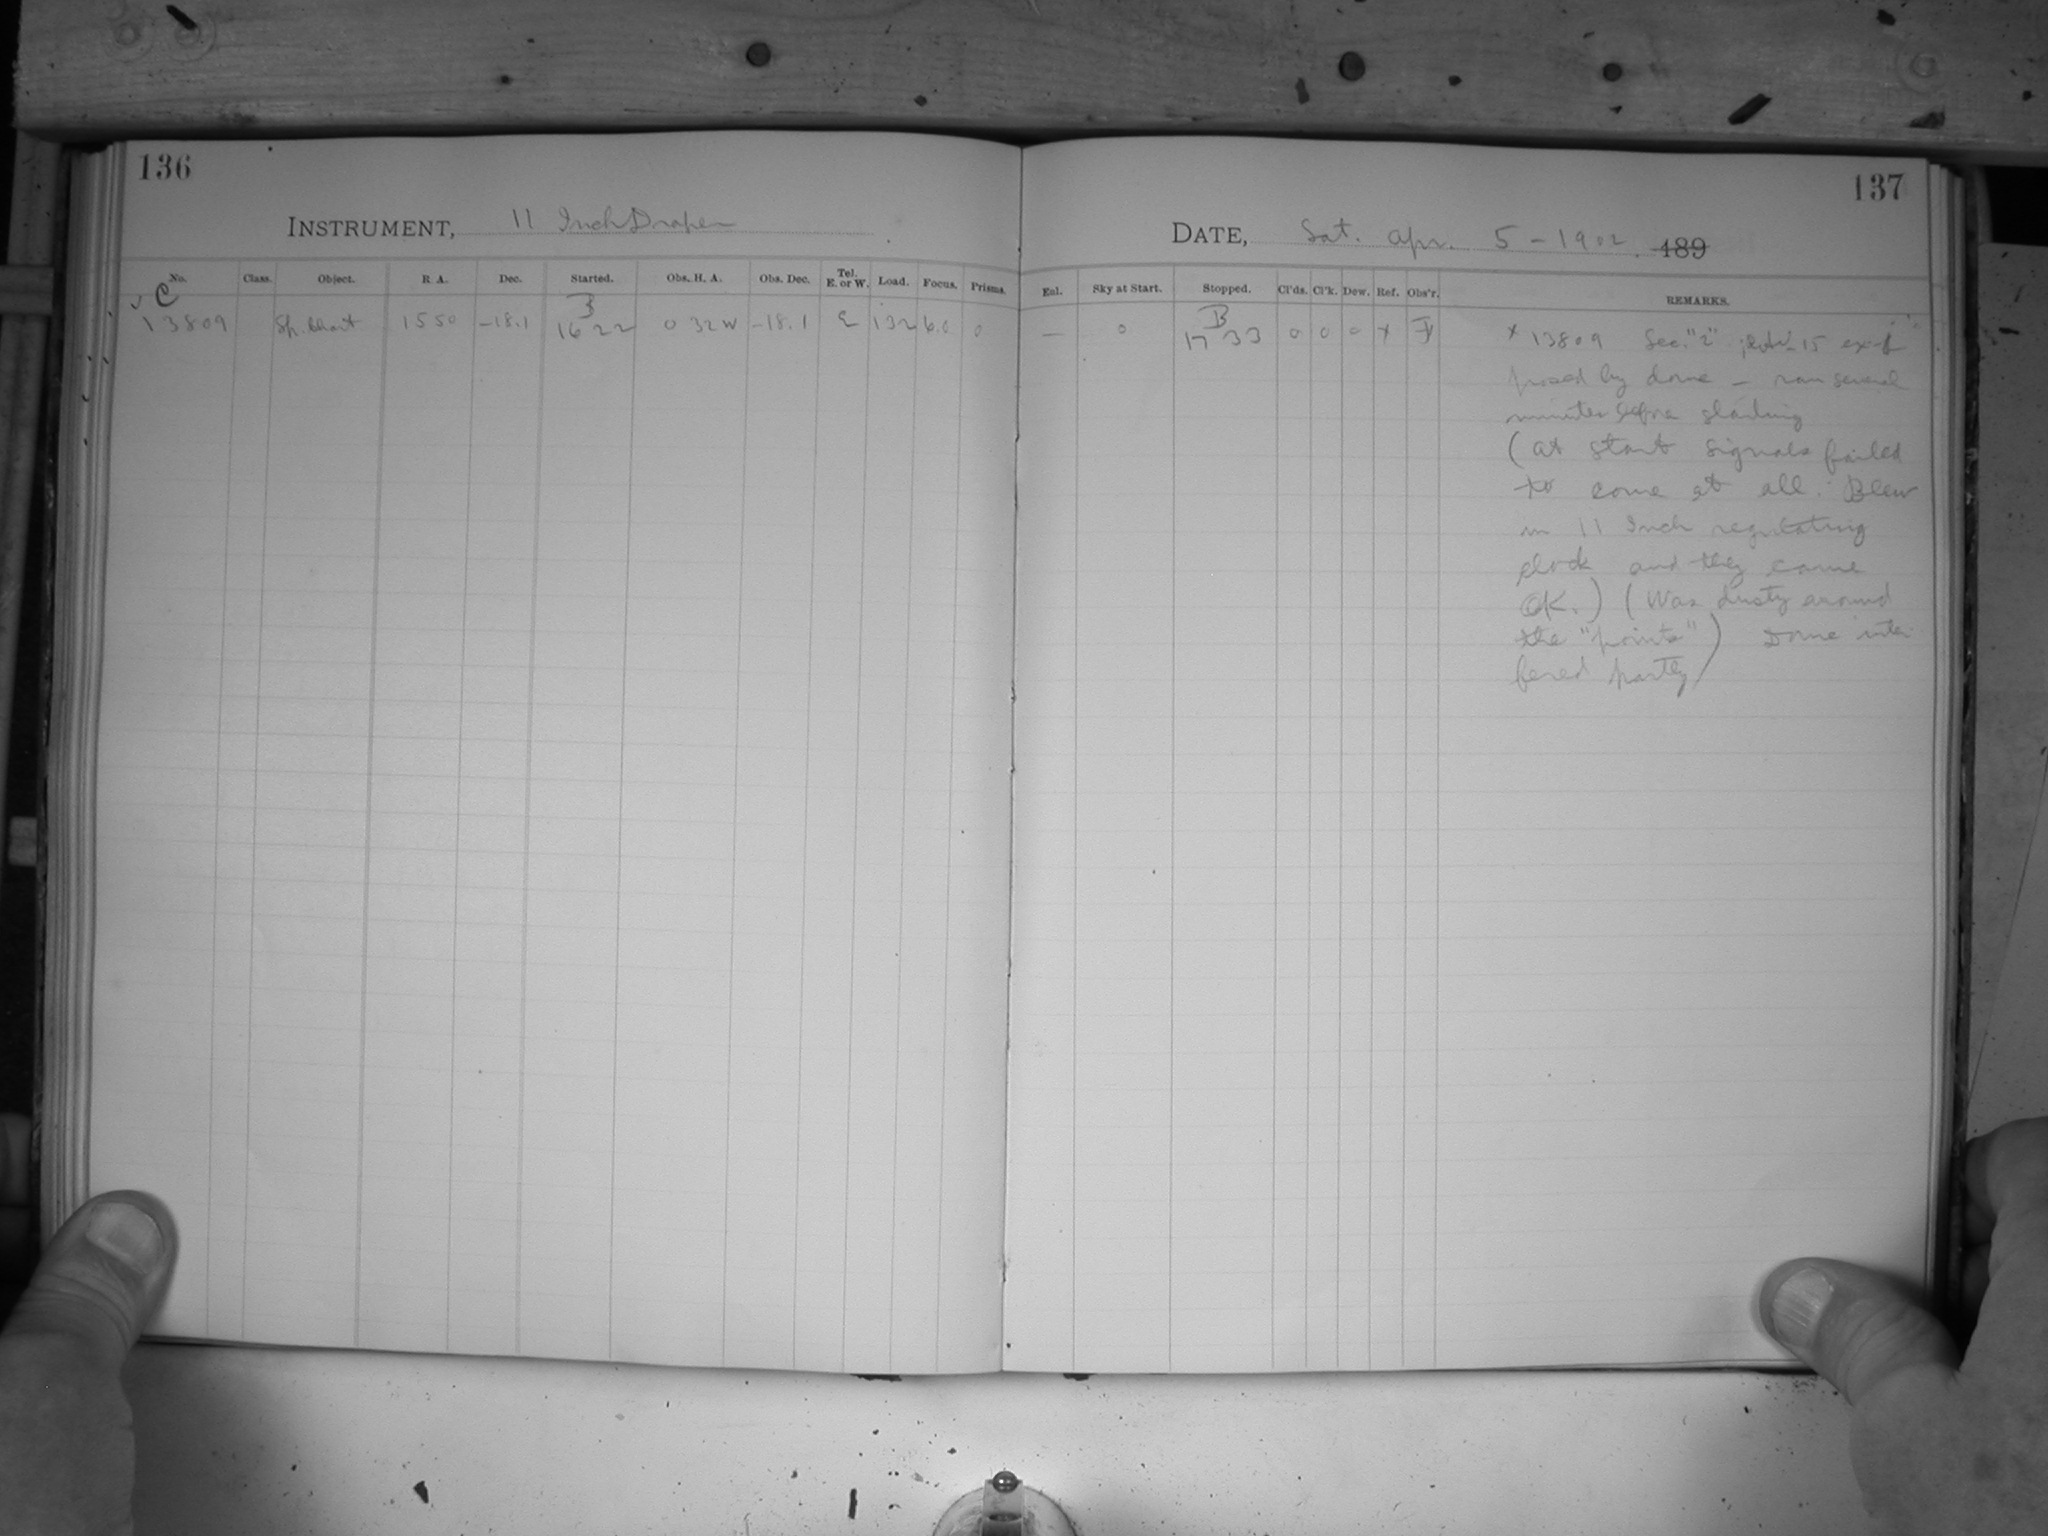 136
INSTRUMENT, 11 Inch Draper
No. Class. Object. R. A. Dec. Started. Obs. H. A. Obs. Dec. Tel. E. or W. Load. Focus. Prisms.
C B
13809 Sp. Chart 15 50 -18.1 16 22 0 32 W -18.1 E 132 6.0 0
137
DATE, Sat. Apr. 5 - 1902. 189
Exl. Sky at Start. Stopped. Cl'ds. Cl'k. Dew. Ref. Obs'r. REMARKS.
B
— 0 17 33 0 0 0 x x 13809 Sec. "2" ; 15 ex-
posed by dome - ran several
minutes before starting
(at start signals failed
to come at all. Blew
in 11 Inch regulating
clock and they came
OK.) (Was dusty around
the "points") Dome inter
fered partly